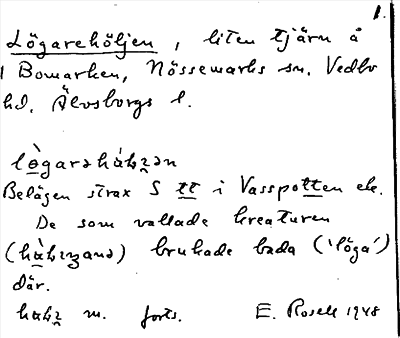 1.
Lögarehöljen, liten tjärn å
Bomarken, Nössemarks sn. Vedbo
hd. Älvsborgs l.
Belägen strax S tt i Vasspotten etc.
De som vallade kreaturen
brukade bada ('löga')
där.
m. forts. E. Rosell 1948